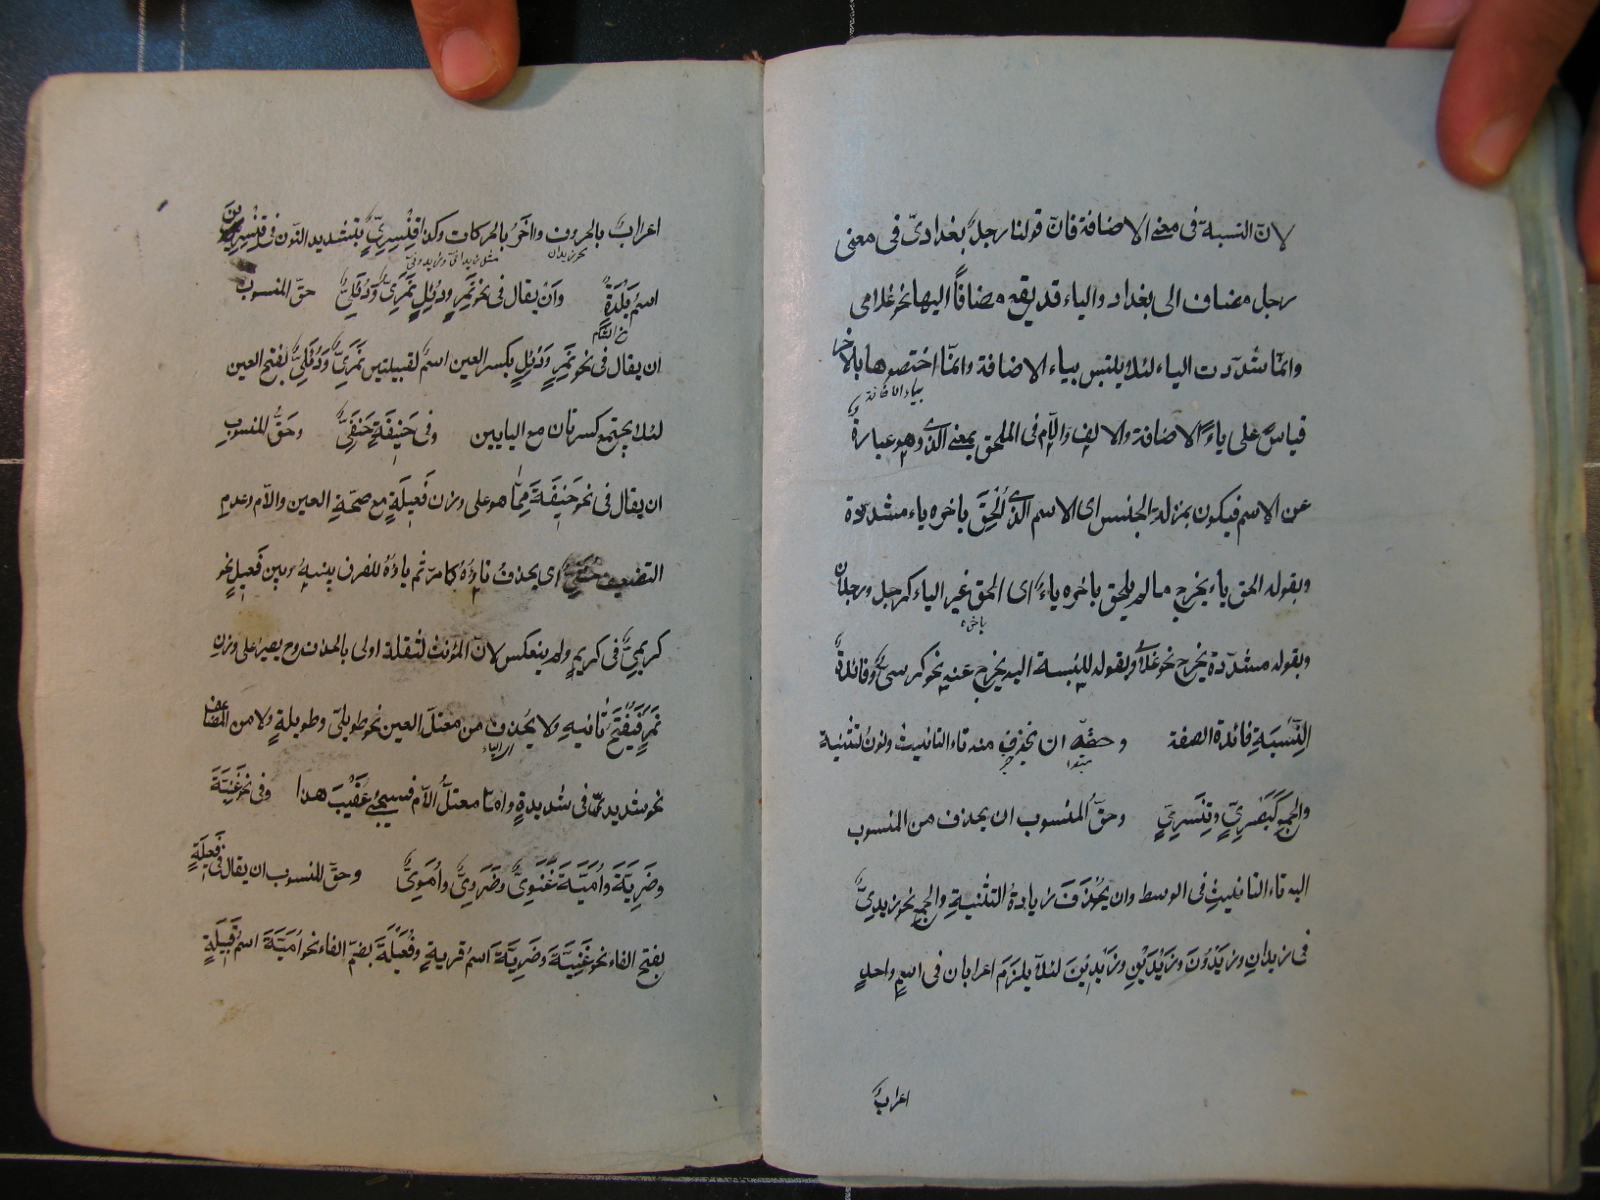 لان النسبة فى معنى الاضافة فان قولنا رجل بغدادىّ فى معنى
رجل مضاف الى بغداد والياء قد يقع مضافًا اليها نحو غلامى
وانّما شدّدت الياء لئلا يلتبس بياء الاضافة وانّما اختصوها بالاخر
بياء الاضافة
قياسً على ياء الاضافة والالف واللام فى الملحق بمعنى الذى وهو عبارة
عن الاسم فيكون بمنزلة الجنس اى الاسم الذى اُلْحِقَ باخره ياء مشددة
وبقوله الحق ياء يخرج ما لم يلحق باخره ياءٌ اى الحق غير الياء كرجل ورجلان
باخره
وبقوله مشدّدة يخرج نحو غلامى وبقوله للنسبة اليه يخرج عنه نحو كرسىّ وفائدةُ
النِّسْبَةِ فائدة الصفة وحقّه ان يحذف منه تاء التانيث ونون لتثنية
مبتدا خبر
والجمع كَبَصْرِىٍّ وقِنَّسْرِىٍّ وحقّ المنسوب ان يحذف من المنسوب
اليه تاء التانيث فى الوسط وان يُحْذَفَ زيادةُ التثنيةِ والجمع نحو زيدىّ
فى زيدانِ وزَيْدُونَ وزَيْدَيْنِ وزَيْدِيْنَ لئلّا يلزمَ اعرابان فى اسمٍ واحدٍ
اعرابٌ
اعرابٌ بالحروف واٰخَرُ بالحركات وكذا قِنَّسرِىّ بتشديد النون فى قِنَّسْرِيْنَ
نحو زيدان مثل زيدانىّ وزيدونىّ
اسمُ بَلْدَةٍ وَاَنْ يقال فى نحو نَمِرٍ ودُئِلٍ نَمَرِىٌّ وَدُئَلِىٌّ حقّ المنسوب
ان يقال فى نحو نَمِرٍ وَدُئِلٍ بكسر العين اسمٌ لقبيلتين نَمَرِىٌّ وَدُئَلِىٌّ بفتح العين
لئلا يجتمع كسرتان مع اليايين وفى حَنِيفَةٍ حَنَفِىٌّ وحَقُّ المنسوبِ
ان يقال فى نحو حَنِيفَةَ مِمَّا هو على وزن فَعِيلَةٍ مع صحّةِ العين واللام وعدمِ
التضعيف حَنَفِىٌّ اى يحذف تاؤهُ كما مرّ ثم ياؤهُ للفرق بينهُ وبين فَعِيلٍ نحو
كريمِىٌّ فى كريمٍ ولم ينعكس لانّ المؤنث لثقله اولى بالحذف وح يصير على وزنِ
نَمِرٍ فَيُفْتَحُ ثانيهِ ولا يُحْذف من معتلّ العين نحو طويلىّ وطويلةٍ ولا من المضاعف
اى الياء
نحو شديدىّ فى شديدةٍ وامّا معتلُّ اللام فسيجئُ عَقِيْبَ هذا وفى نحو غَنِيَّةَ
وضَرِيَّةَ واُمَيَّةَ غَنَوِىٌّ وضَرَوِىٌّ واُمَوِىٌّ وحقّ المنسوب ان يقال فى فَعِيلَةٍ
بفتح الفاء نحو غَنِيَّةَ وضَرِيَّةَ اسمُ قريةٍ وفُعَيْلَةَ بضمّ الفاء نحو اُمَيَّةَ اسمُ قَبِيلَةٍ